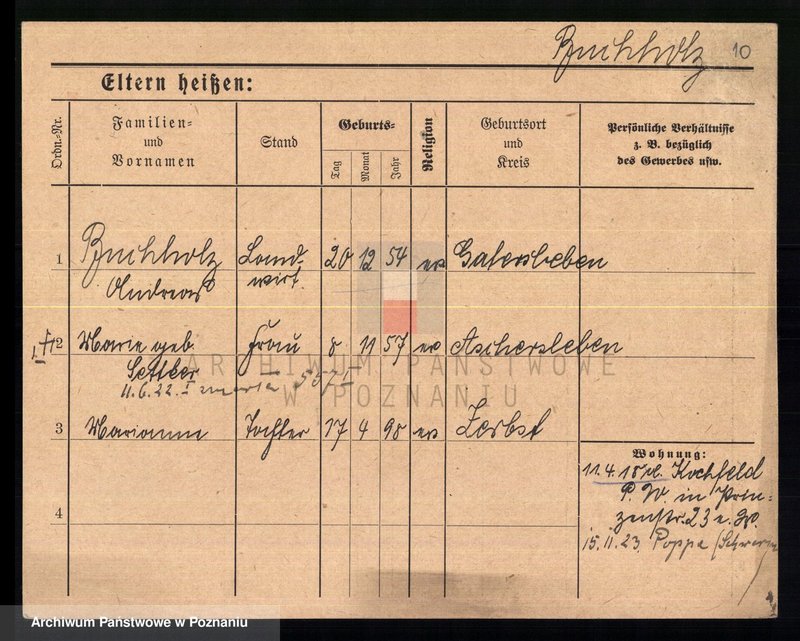 Buchholz 10
Eltern heißen:
Ordn.-Nr.
Familien-
und
Vornamen
Stand
Geburts-
Tag
Monat
Jahr
Religion
Geburtsort
und
Kreis
Persönliche Verhältnisse
z. B. bezüglich
des Gewerbes usw.
1 Buchholz Land- 20 12 54 ev Gatersleben
Andreas wirt
2 Marie geb. Frau 8 11 57 ev Aschersleben
11.6.22. zmarła
3 Marianne Tochter 17 4 98 ev Zerbst
4
Wohnung:
11.4.18 Kochfeld
P. W. in Prin-
zenstr. 23
15.11.23. Poppe
ARCHIWUM PAŃSTWOWE
W POZNANIU
Archiwum Państwowe w Poznaniu